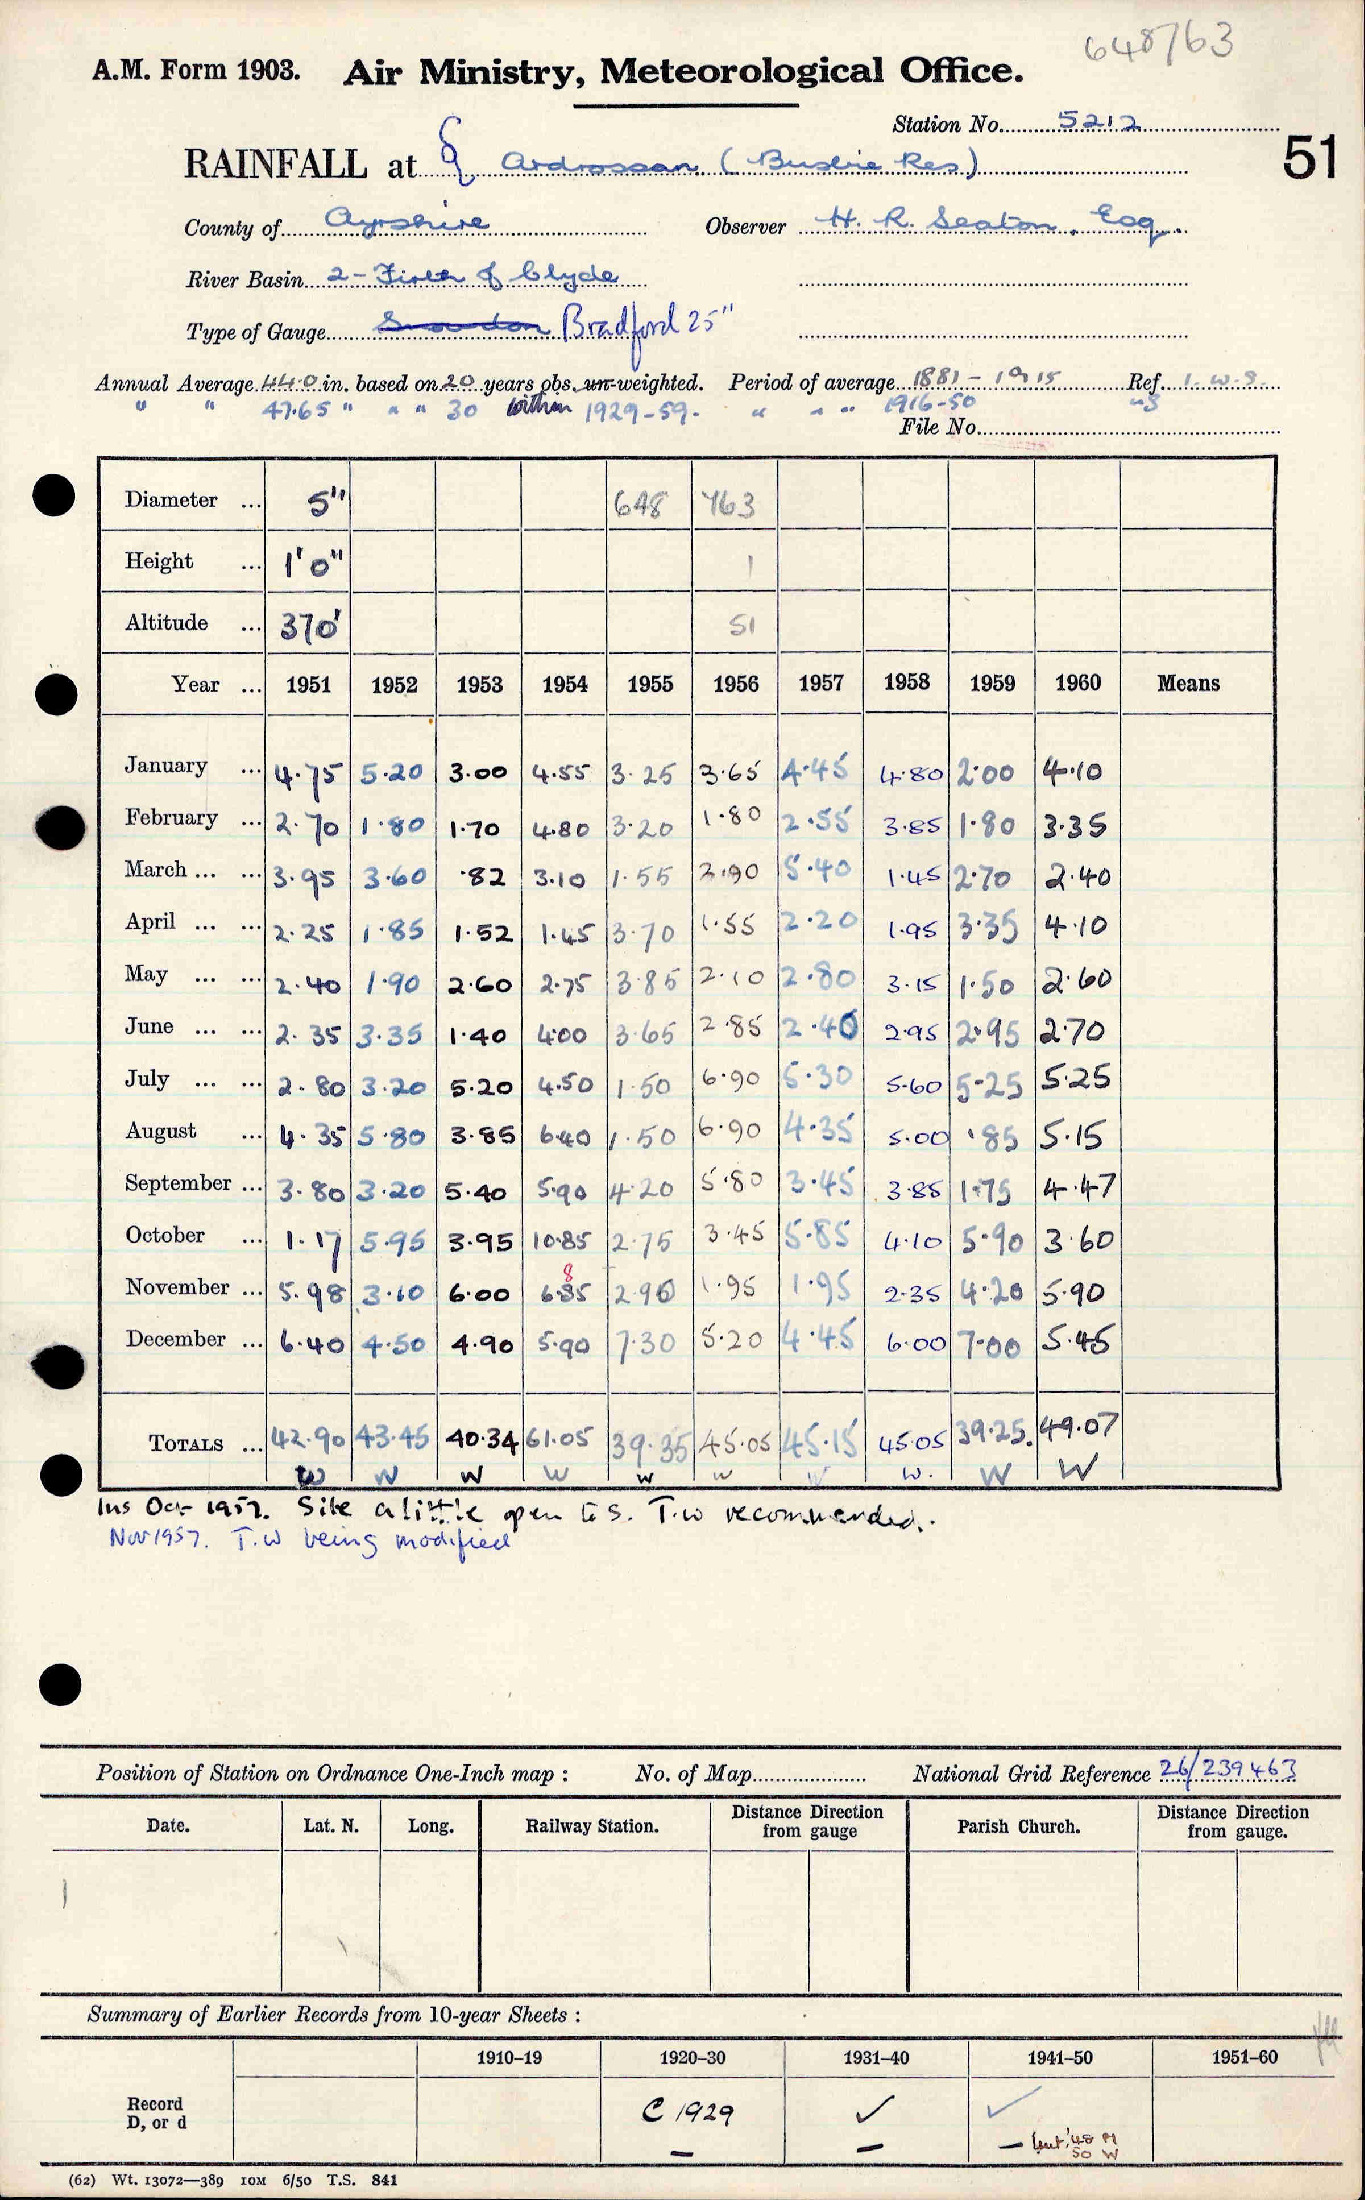 648/63
A.M. Form 1903. Air Ministry, Meteorological Office.
Station No. 5212
51
RAINFALL at Ardrossan (Busbie Res)
County of Ayrshire Observer H. R. Seaton, Esq.
River Basin 2 - Firth of Clyde
Type of Gauge Snowdon Bradford 25"
Annual Average 44.0 in. based on 20 years obs. un-weighted. Period of average 1881 - 1915 Ref. I.W.S.
" " 47.65 " " " 30 within 1929-59. " " " 1916-50 "S
File No.
Diameter ... 5" 648 763
Height ... 1'0" 1
Altitude ... 370' 51
Year ... 1951 1952 1953 1954 1955 1956 1957 1958 1959 1960 Means
January ... 4.75 5.20 3.00 4.55 3.25 3.65 4.45 4.80 2.00 4.10
February ... 2.70 1.80 1.70 4.80 3.20 1.80 2.55 3.85 1.80 3.35
March ... ... 3.95 3.60 .82 3.10 1.55 2.90 5.40 1.45 2.70 2.40
April ... ... 2.25 1.85 1.52 1.45 3.70 1.55 2.20 1.95 3.35 4.10
May ... ... 2.40 1.90 2.60 2.75 3.85 2.10 2.80 3.15 1.50 2.60
June ... ... 2.35 3.35 1.40 4.00 3.65 2.85 2.40 2.95 2.95 2.70
July ... ... 2.80 3.20 5.20 4.50 1.50 6.90 5.30 5.60 5.25 5.25
August ... 4.35 5.80 3.85 6.40 1.50 6.90 4.35 5.00 .85 5.15
September ... 3.80 3.20 5.40 5.90 4.20 5.80 3.45 3.85 1.75 4.47
October ... 1.17 5.95 3.95 10.85 2.75 3.45 5.85 4.10 5.90 3.60
8
November ... 5.98 3.10 6.00 6.85 2.90 1.95 1.95 2.35 4.20 5.90
December ... 6.40 4.50 4.90 5.90 7.30 5.20 4.45 6.00 7.00 5.45
TOTALS ... 42.90 43.45 40.34 61.05 39.35 45.05 45.15 45.05 39.25. 49.07
W W W W W W W W. W W
Ins Oct 1957. Site a little open to S. T.W recommended.
Nov 1957. T.W being modified
Position of Station on Ordnance One-Inch map : No. of Map National Grid Reference 26/239463
Date. Lat. N. Long. Railway Station. Distance Direction from gauge Parish Church. Distance Direction from gauge.
Summary of Earlier Records from 10-year Sheets :
1910–19 1920–30 1931–40 1941–50 1951–60
Record D, or d C 1929 ✓ ✓
— — — '48 M
50 W
(62) Wt. 13072—389 10M 6/50 T.S. 841